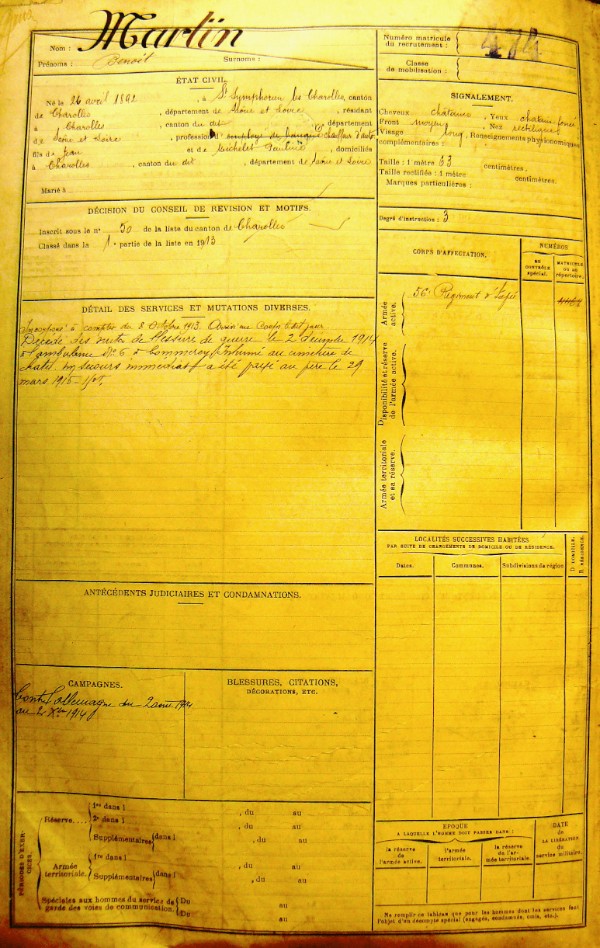 Nom : Martin
Prénoms : Benoît Surnome :
Numéro matricule
du recrutement : 484
Classe
de mobilisation :
ÉTAT CIVIL.
Né le 26 avril 1892, à St Symphorien les Charolles, canton
de Charolles, département de Saône et Loire, résidant
à Charolles, canton du dit, département
de Saône et Loire, profession d'employé de banque Chauffeur d'auto
fils de Jean et de Michelet Pauline, domiciliés
à Charolles, canton du dit, département de Saône et Loire
Marié à
SIGNALEMENT.
Cheveux châtains, Yeux châtain foncé
Front moyen, Nez rectiligne
Visage long, Renseignements physionomiques
complémentaires :
Taille : 1 mètre 63 centimètres.
Taille rectifiée : 1 mètre centimètres.
Marques particulières :
Degré d'instruction : 3
DÉCISION DU CONSEIL DE REVISION ET MOTIFS.
Inscrit sous le n° 50 de la liste du canton de Charolles
Classé dans la 1e partie de la liste en 1913
CORPS D'AFFECTATION.
NUMÉROS
AU
CONTRÔLE
SPÉCIAL.
MATRICULE
OU AU
RÉPERTOIRE.
Armée
active.
56e Régiment d'Infie
Disponibilité et réserve
de l'armée active.
Armée territoriale
et sa réserve.
DÉTAIL DES SERVICES ET MUTATIONS DIVERSES.
Incorporé à compter du 8 Octobre 1913. Arrivé au Corps le dit jour
Décédé des suites de blessures de guerre le 2 1914
à l'ambulance N° 6 à Commercy, inhumé au cimetière de
un secours immédiat a été payé au père le 29
mars 1915
LOCALITÉS SUCCESSIVES HABITÉES
PAR SUITE DE CHANGEMENTS DE DOMICILE OU DE RÉSIDENCE.
Dates.
Communes.
Subdivisions de région
D. DOMICILE.
R. RÉSIDENCE.
ANTÉCÉDENTS JUDICIAIRES ET CONDAMNATIONS.
CAMPAGNES.
Contre l'Allemagne du 2 août 1914
au 2 Xbre 1914
BLESSURES, CITATIONS,
DÉCORATIONS, ETC.
PÉRIODES D'EXERCICES.
Réserve....
1re dans l , du au
2e dans l , du au
Supplémentaires (dans l , du au
Armée
territoriale.
1re dans l , du au
Supplémentaires (dans l , du au
Spéciales aux hommes du service de
garde des voies de communication.
Du au
Du au
ÉPOQUE
A LAQUELLE L'HOMME DOIT PASSER DANS :
la réserve
de l'armée active.
l'armée
territoriale.
la réserve
de l'armée territoriale.
DATE
de
LA LIBÉRATION
du
service militaire.
Ne remplir ce tableau que pour les hommes dont les services font
l'objet d'un décompte spécial (engagés, condamnés, omis, etc.).